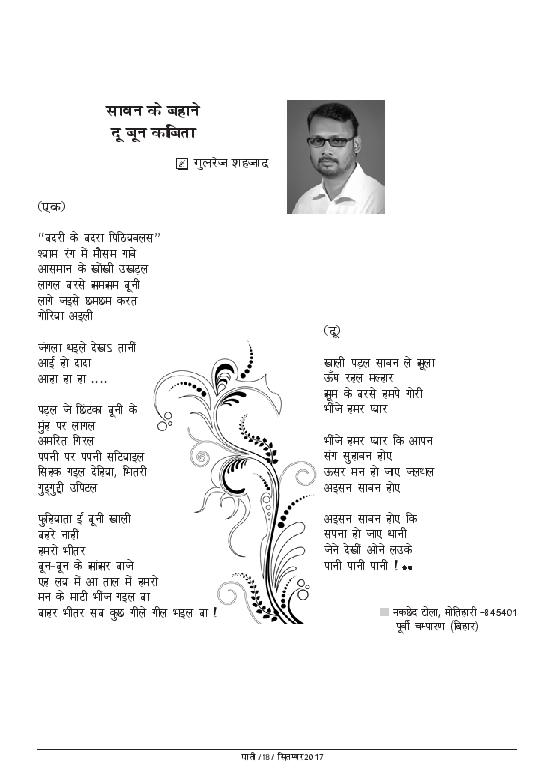 सावन के बहाने
दू बून कबिता
गुलरेज शहजाद
(एक)
“बदरी के बदरा पिठियवलस”
श्याम रंग में मौसम गावे
आसमान के खोंखी उखड़ल
लागल बरसे झमझम बूनी
लागे जइसे छमछम करत
गोरिया अइली
जंगला धइले देखऽ तानीं
आई हो दादा
आहा हा हा ....
पड़ल जे छिंटका बूनी के
मुंह पर लागल
अमरित गिरल
पपनी पर पपनी सटियाइल
सिहक गइल देहिया, भितरी
गुदगुद्दी उपिटल
फुहियाता ई बूनी खाली
बहरे नाहीं
हमरो भीतर
बून-बून के झांझर बाजे
एह लय में आ ताल में हमरो
मन के माटी भींज गइल बा
बाहर भीतर सब कुछ गील गील भइल बा !
(दू)
खाली पड़ल सावन ले झूला
ऊँघ रहल मल्हार
झूम के बरसे हमपे गोरी
भींजे हमर प्यार
भींजे हमर प्यार कि आपन
संग सुहावन होए
ऊसर मन हो जाए जलथल
अइसन सावन होए
अइसन सावन होए कि
सपना हो जाए धानी
जेने देखीं ओने लउके
पानी पानी पानी !
नकछेद टोला, मोतिहारी -845401
पूर्वी चम्पारण (बिहार)
पाती /18/ सितम्बर 2017